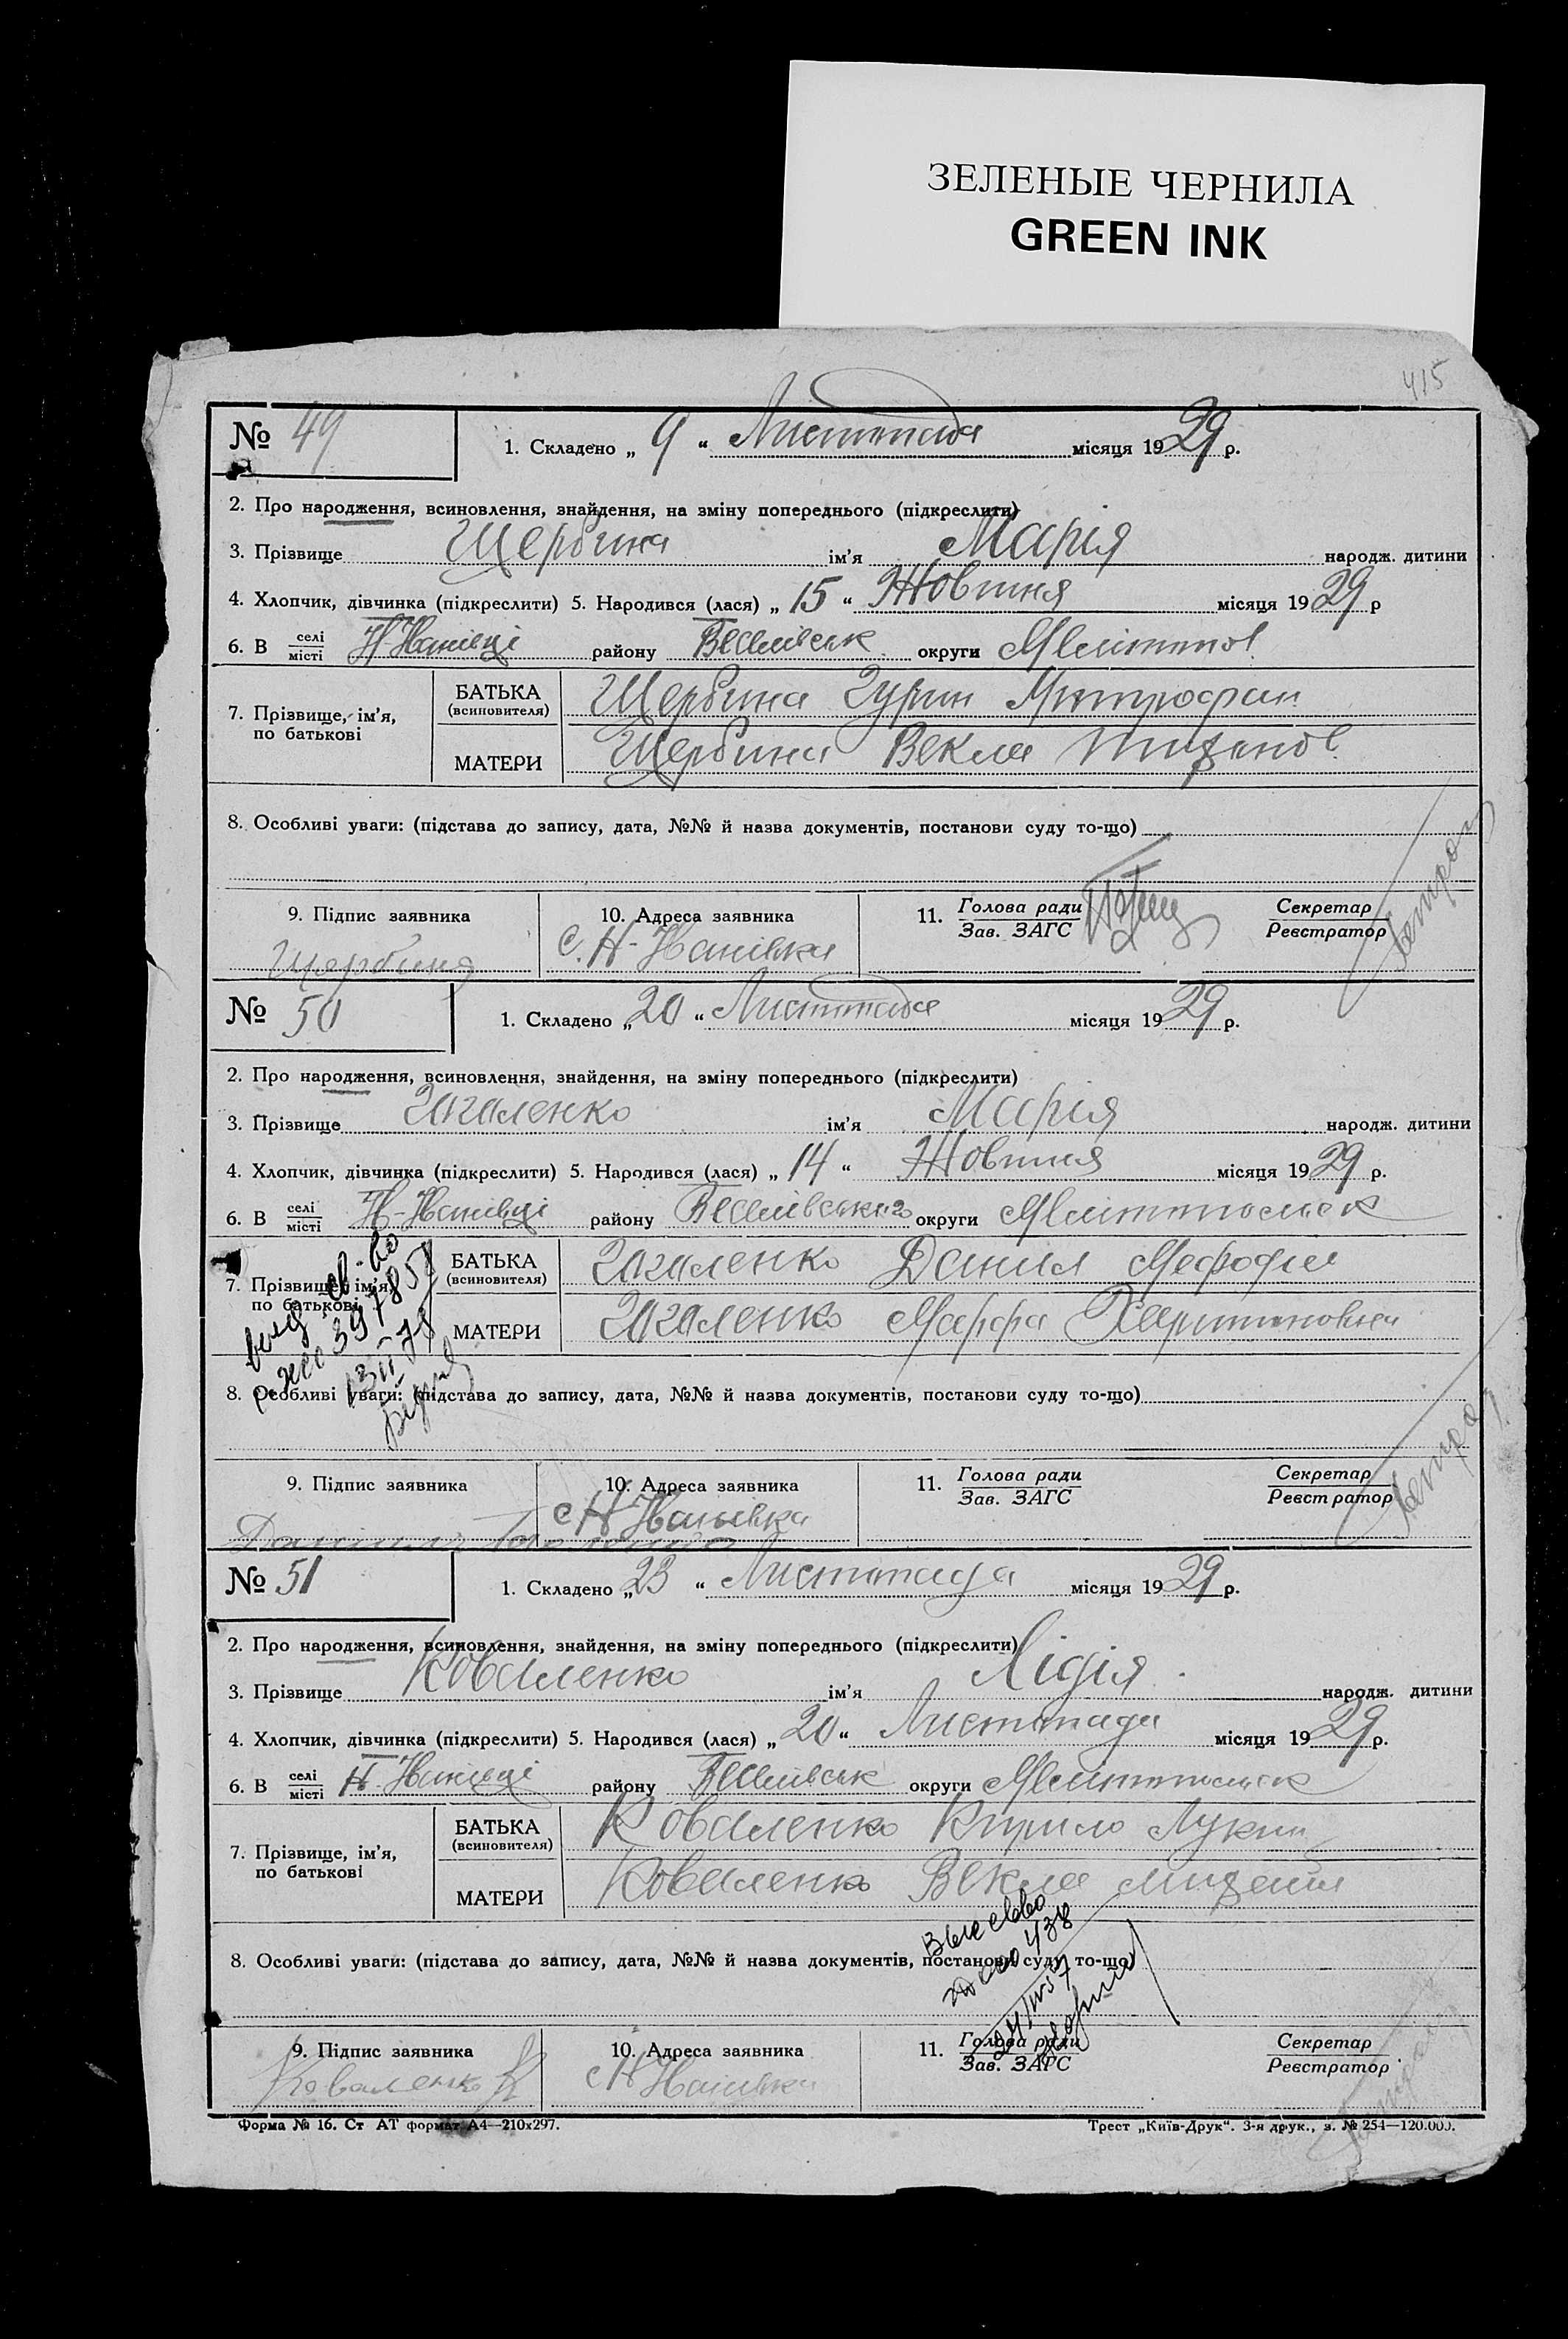 ЗЕЛЕНЫЕ ЧЕРНИЛА
GREEN INK
415
№ 49
1. Складено „ 9 “ Листопада місяця 1929 р.
2. Про народження, всиновлення, знайдення, на зміну попереднього (підкреслити)
3. Прізвище Щербина ім’я Марія народж. дитини
4. Хлопчик, дівчинка (підкреслити) 5. Народився (лася) „ 15 “ Жовтня місяця 1929 р
6. В селі/місті району округи
7. Прізвище, ім’я, по батькові
БАТЬКА (всиновителя) Щербина Гурин Митрофан
МАТЕРИ Щербина Векла
8. Особливі уваги: (підстава до запису, дата, №№ й назва документів, постанови суду то-що)
9. Підпис заявника
10. Адреса заявника
11. Голова ради/Зав. ЗАГС
Секретар/Реєстратор
Щербина
с. Н-Іванівка
№ 50
1. Складено „ 20 “ Листопада місяця 1929 р.
2. Про народження, всиновлення, знайдення, на зміну попереднього (підкреслити)
3. Прізвище Гагаленко ім’я Марія народж. дитини
4. Хлопчик, дівчинка (підкреслити) 5. Народився (лася) „ 14 “ Жовтня місяця 1929 р.
6. В селі/місті Н-Іванівці району округи
7. Прізвище, ім’я, по батькові
БАТЬКА (всиновителя) Гагаленко Данил Мефодие
МАТЕРИ Гагаленко Марфа Харитоновна
8. Особливі уваги: (підстава до запису, дата, №№ й назва документів, постанови суду то-що)
9. Підпис заявника
10. Адреса заявника
11. Голова ради/Зав. ЗАГС
Секретар/Реєстратор
с Н Іванівка
№ 51
1. Складено „ 23 “ Листопада місяця 1929 р.
2. Про народження, всиновлення, знайдення, на зміну попереднього (підкреслити)
3. Прізвище Коваленко ім’я Лідія народж. дитини
4. Хлопчик, дівчинка (підкреслити) 5. Народився (лася) „ 20 “ Листопада місяця 1929 р.
6. В селі/місті району округи
7. Прізвище, ім’я, по батькові
БАТЬКА (всиновителя) Коваленко Кирило Лукич
МАТЕРИ Коваленко Векла
8. Особливі уваги: (підстава до запису, дата, №№ й назва документів, постанови суду то-що)
9. Підпис заявника
10. Адреса заявника
11. Голова ради/Зав. ЗАГС
Секретар/Реєстратор
Коваленко К
с Н Іванівка
Форма № 16. Ст АТ формат А4—210x297.
Трест „Київ-Друк“. 3-я друк., з. № 254—120.000.